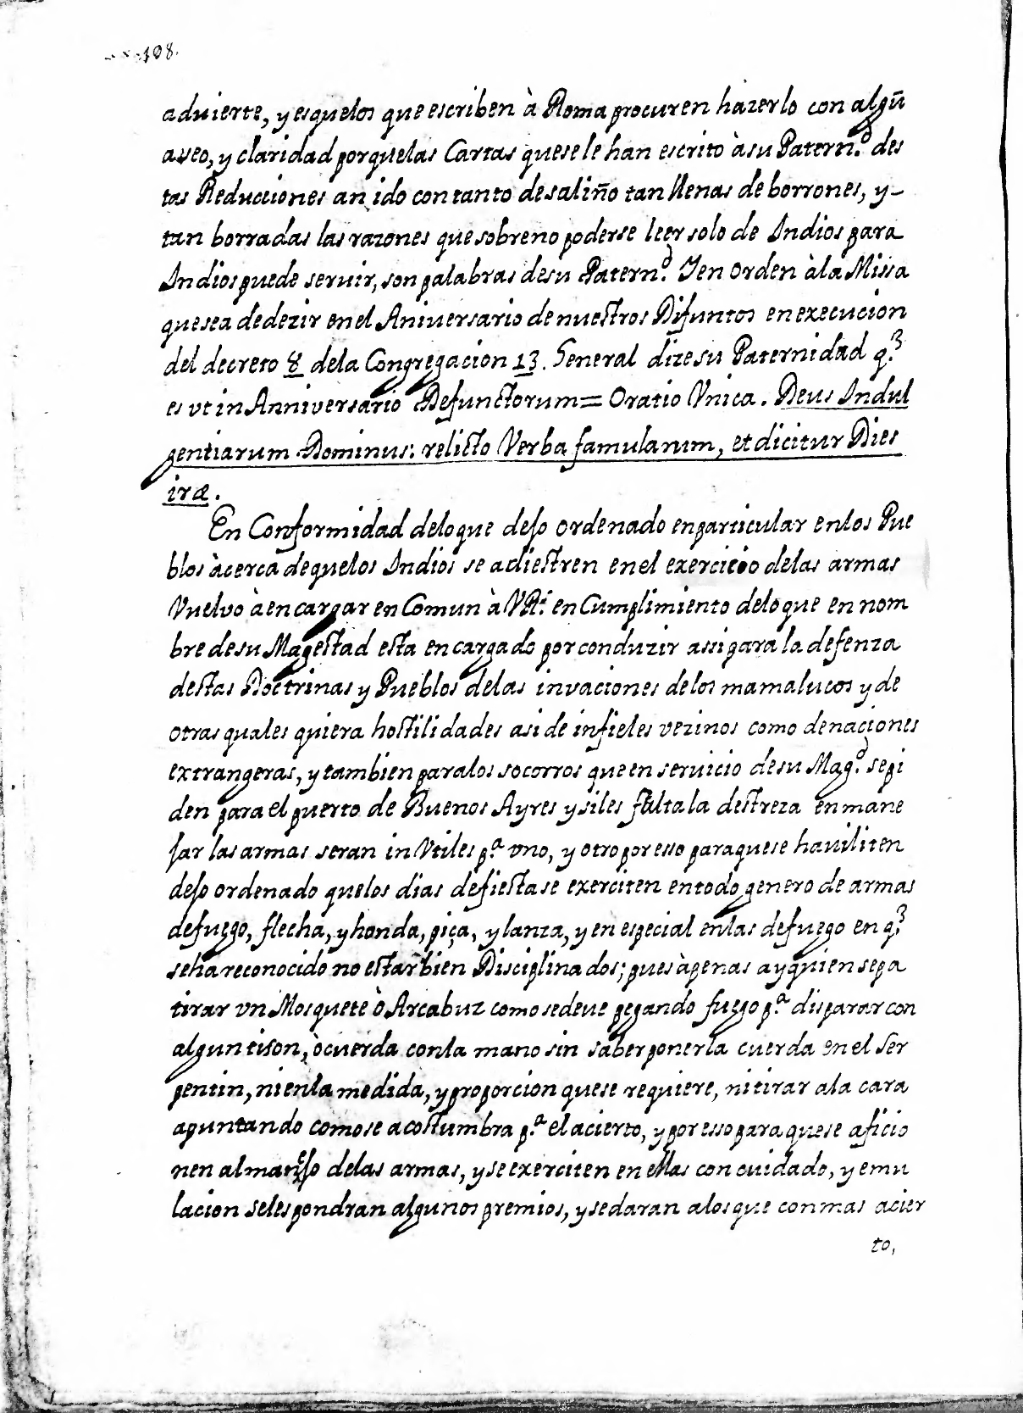 108.
aduierte, y esquelos que escriben à Roma procuren hazerlo con algũ
aseo, y claridad porquelas Cartas quesele han escrito àsu Patern.d des
tas Reducciones an ido contanto desaliño tan llenas de borrones, y-
tan borradas las razones quesobreno poderse leer solo de Indios para
Indios puede seruir, son palabras desu Patern.d Yen orden àla Missa
quesea dedezir enel Aniversario de nuestros Difuntos en execucion
del decreto 8 dela Congregacion 13. General dizesu Paternidad q.e
es vt in Anniversario Defunctorum= Oratio Vnica. Deus Indul
gentiarum Dominus: relicto Verba famularum, et dicitur Dies
iræ.
En Conformidad deloque dejo ordenado enparticular enlos Pue
blos àcerca dequelos Indios se adiestren enel exercicio delas armas
Vuelvo àencargar en Comun à VRs en Cumplimiento deloque en nom
bre desu Magestad esta encargado por conduzir assi para la defenza
destas Doctrinas y Pueblos delas invaciones delos mamalucos y de
otras quales quiera hostilidades asi de infieles vezinos como denaciones
extrangeras, y tambien paralos socorros queen seruicio desu Mag.d sepi
den para el puerto de Buenos Ayres y siles falta la destreza en mane
jar las armas seran in Vtiles p.a vno, y otro por esso paraquese haviliten
dejo ordenado quelos dias defiestase exerciten entodo genero de armas
defuego, flecha, y honda, pica, y lanza, y en especial enlas defuego en q.e
seha reconocido no estar bien Disciplinados; pues àpenas ay quien sepa
tirar vn Mosquete ò Arcabuz como sedeue pegando fuego p.a disparar con
algun tison, ò cuerda conla mano sin saber ponerla cuerda enel Ser
pentin, ni enla medida, y proporcion quese requiere, ni tirar ala cara
apuntando comose acostumbra p.a el acierto, y por esso para quese aficio
nen al manejo delas armas, y se exerciten en ellas con cuidado, y emu
lacion seles pondran algunos premios, y sedaran alosque con mas acier
to,